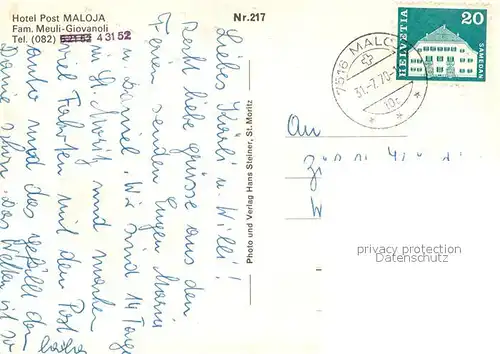 Hotel Post MALOJA
Fam. Meuli-Giovanoli
Tel. (082) 5 21 52 4 31 52
Nr. 217
Liebes Käthi u. Willi!
Recht liebe grüsse aus den
Ferien senden Eugen Maria
u. Daniel. Wir sind 14 Tage
in St. Moritz und machen
viel Fahrten mit dem Post
auto und das gefällt den
schon. Das Wetter ist
Photo und Verlag Hans Steiner, St. Moritz
7516 MALOJA
31.-7.70-
HELVETIA
20
SAMEDAN
An
privacy protection
Datenschutz